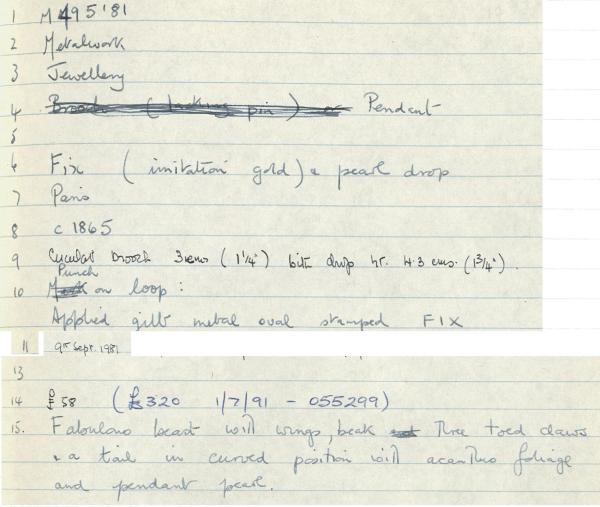 1 M 495'81
2 Metalwork
3 Jewellery
4 Brooch (lacking pin) or Pendant
5
6 Fix (imitation gold) & pearl drop
7 Paris
8 c 1865
9 Circular brooch 3 cms (1 1/4") with drop ht. 4.3 cms. (1 3/4").
Punch
10 Mark on loop:
Applied gilt metal oval stamped FIX
11 9th Sept. 1981
13
14 £58 (£320 1/7/91 - 055299)
15. Fabulous beast with wings, beak three toed claws
& a tail in curved position with acanthus foliage
and pendant pearl.